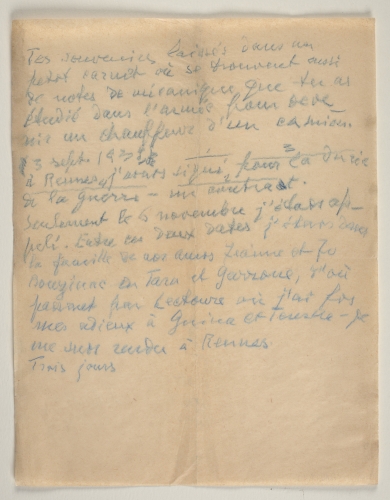 Tes souvenirs laissés dans un
petit carnet où se trouvent aussi
de notes de mécanique que tu as
étudié dans l'armée pour deve
nir un chauffeur d'un camion.
3 sept. 193
à Rennes j'avais signé, pour la durée
de la guerre – un contrat.
Seulement le 6 novembre j'étais ap-
pelé. Entre ces deux dates j'étais avec
la famille de nos amis et
en Tarn et Garonne, d'où
par Lectoure où j'ai fos
mes adieux à et – je
me suis rendu à Rennes
Trois jours